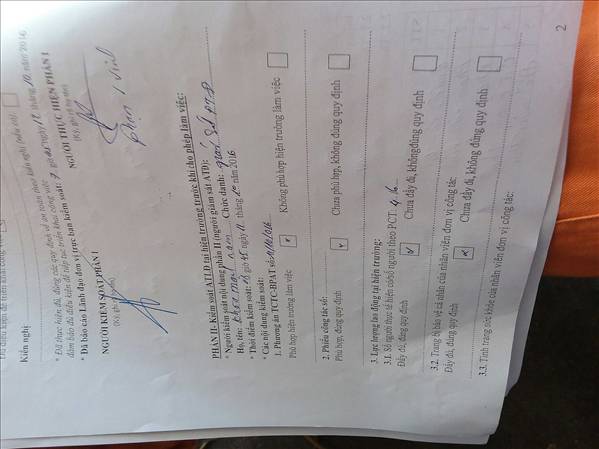 Kiến nghị
* Đã thực hiện đủ, đúng các quy định về an toàn theo kiến nghị (nếu có),
đảm bảo đủ điều kiện để tiếp tục triển khai công việc
* Đã báo cho lãnh đạo đơn vị trực ban kiểm soát: 7 giờ ngày 12 tháng 10 năm 2016
NGƯỜI KIỂM SOÁT PHẦN I
(Ký, ghi rõ họ tên)
NGƯỜI THỰC HIỆN PHẦN I
(Ký, ghi rõ họ tên)
Phạm Vinh
PHẦN II- Kiểm soát ATLĐ tại hiện trường trước khi cho phép làm việc:
* Người kiểm soát nội dung phần II (người giám sát ATĐ):
Họ, tên: năm Chức danh:
* Thời điểm kiểm soát: giờ 45 ngày tháng 10 năm 2016
* Các nội dung kiểm soát:
1. Phương án TCTC-BPAT số:
Phù hợp hiện trường làm việc x Không phù hợp hiện trường làm việc
2. Phiếu công tác số:
Phù hợp, đúng quy định v Chưa phù hợp, không đúng quy định
3. Lực lượng lao động tại hiện trường:
3.1. Số người thực tế hiện có/số người theo PCT:
Đầy đủ, đúng quy định v Chưa đầy đủ, khôngđúng quy định
3.2. Trang bị bảo vệ cá nhân của nhân viên đơn vị công tác
Đầy đủ, đúng quy định x Chưa đầy đủ, không đúng quy định
3.3. Tình trạng sức khỏe của nhân viên đơn vị công tác:
2